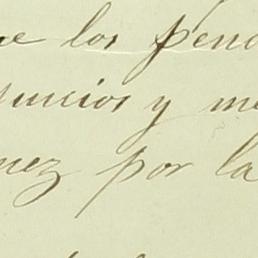 e los pend
uncios y me
nez por la